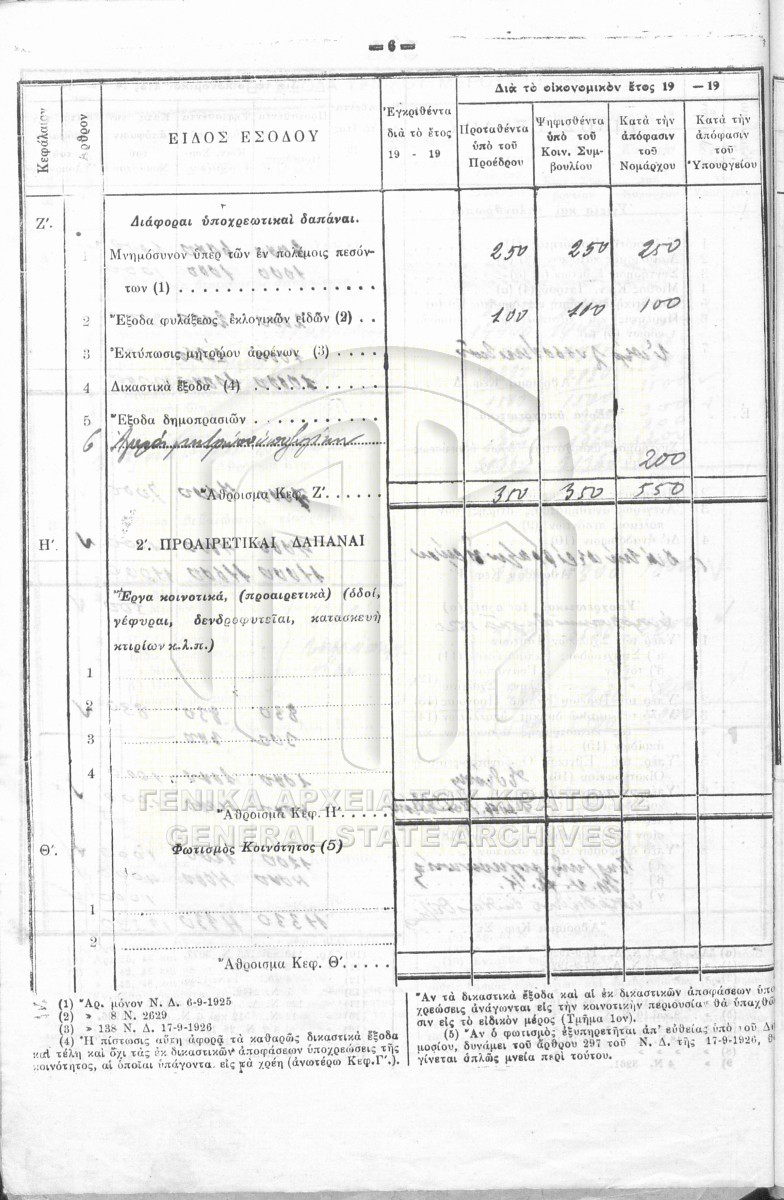 — 6 —
Κεφάλαιον
Ἄρθρον
ΕΙΔΟΣ ΕΣΟΔΟΥ
Ἐγκριθέντα
διὰ τὸ ἔτος
19 - 19
Διὰ τὸ οἰκονομικὸν ἔτος 19 — 19
Προταθέντα
ὑπὸ τοῦ
Προέδρου
Ψηφισθέντα
ὑπὸ τοῦ
Κοιν. Συμ-
βουλίου
Κατὰ τὴν
ἀπόφασιν
τοῦ
Νομάρχου
Κατὰ τὴν
ἀπόφασιν
τοῦ
Ὑπουργείου
Ζ'. Διάφοραι ὑποχρεωτικαὶ δαπάναι.
Μνημόσυνον ὑπὲρ τῶν ἐν πολέμοις πεσόν- 250 250 250
των (1) . . . . . . . . . . . . . . . . .
2 Ἔξοδα φυλάξεως ἐκλογικῶν εἰδῶν (2) . . 100 100 100
3 Ἐκτύπωσις μητρώου ἀρρένων (3) . . . .
4 Δικαστικὰ ἔξοδα (4) . . . . . . . . . .
5 Ἔξοδα δημοπρασιῶν . . . . . . . . . . .
6 200
Ἄθροισμα Κεφ. Ζ'. . . . . . 350 350 550
Η'. 2'. ΠΡΟΑΙΡΕΤΙΚΑΙ ΔΑΠΑΝΑΙ
Ἔργα κοινοτικά, (προαιρετικὰ) (ὁδοί,
γέφυραι, δενδροφυτεῖαι, κατασκευὴ
κτιρίων κ.λ.π.)
1
2
3
4
Ἄθροισμα Κεφ. Η'. . . . . .
Θ'. Φωτισμὸς Κοινότητος (5)
1
2
Ἄθροισμα Κεφ. Θ'. . . . . .
ΓΕΝΙΚΑ ΑΡΧΕΙΑ ΤΟΥ ΚΡΑΤΟΥΣ
GENERAL STATE ARCHIVES
(1) Ἄρ. μόνον Ν. Δ. 6-9-1925
(2) » 8 Ν. 2629
(3) » 138 Ν. Δ. 17-9-1926
(4) Ἡ πίστωσις αὕτη ἀφορᾷ τὰ καθαρῶς δικαστικὰ ἔξοδα
καὶ τέλη καὶ ὄχι τὰς ἐκ δικαστικῶν ἀποφάσεων ὑποχρεώσεις τῆς
κοινότητος, αἱ ὁποῖαι ὑπάγονται εἰς τὰ χρέη (ἀνωτέρω Κεφ.Γ'.).
Ἂν τὰ δικαστικὰ ἔξοδα καὶ αἱ ἐκ δικαστικῶν ἀποφάσεων ὑπο
χρεώσεις ἀνάγωνται εἰς τὴν κοινοτικὴν περιουσίαν θὰ ὑπαχθῶ
σιν εἰς τὸ εἰδικὸν μέρος (Τμῆμα 1ον).
(5) Ἂν ὁ φωτισμὸς ἐξυπηρετῆται ἀπ' εὐθείας ὑπὸ τοῦ Δη
μοσίου, δυνάμει τοῦ ἄρθρου 297 τοῦ Ν. Δ. τῆς 17-9-1926, θ
γίνεται ἁπλῶς μνεία περὶ τούτου.